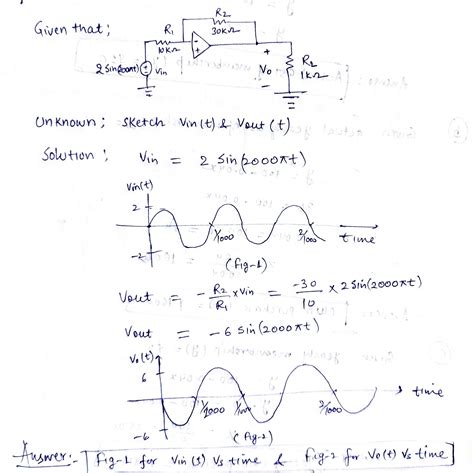 Given that;
R2
30KΩ
R1
10KΩ
2 Sin(2000πt)
Vin
+
Vo
-
RL
1KΩ
Unknown; Sketch Vin(t) & Vout(t)
Solution; Vin = 2 Sin(2000πt)
Vin(t)
2
-2
1/1000
2/1000
time
(fig-1)
Vout = -R2/R1 x Vin = -30/10 x 2 Sin(2000πt)
Vout = -6 Sin(2000πt)
Vo(t)
6
-6
1/2000
1/1000
2/1000
time
(fig-2)
Answer:- fig-1 for Vin(s) Vs time & fig-2 for Vo(t) Vs time